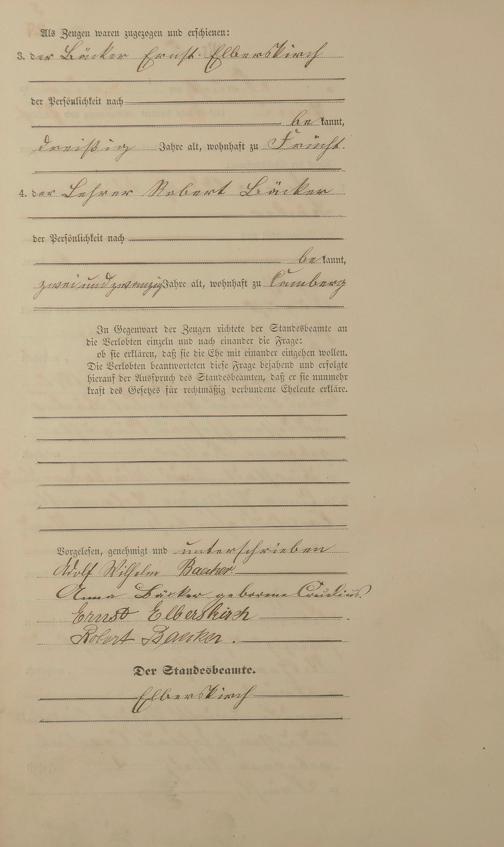 Als Zeugen waren zugezogen und erschienen:
3. der Bäcker Ernst Elberskirch
der Persönlichkeit nach
be kannt,
dreißig Jahre alt, wohnhaft zu Frücht.
4. der Lehrer Robert Bäcker
der Persönlichkeit nach
be kannt,
zwei und zwanzig Jahre alt, wohnhaft zu
In Gegenwart der Zeugen richtete der Standesbeamte an
die Verlobten einzeln und nach einander die Frage:
ob sie erklären, daß sie die Ehe mit einander eingehen wollen.
Die Verlobten beantworteten diese Frage bejahend und erfolgte
hierauf der Ausspruch des Standesbeamten, daß er sie nunmehr
kraft des Gesetzes für rechtmäßig verbundene Eheleute erkläre.
Vorgelesen, genehmigt und unterschrieben
Adolf Wilhelm
Anna Bäcker geborene
Ernst Elberskirch
Robert
Der Standesbeamte.
Elberskirch